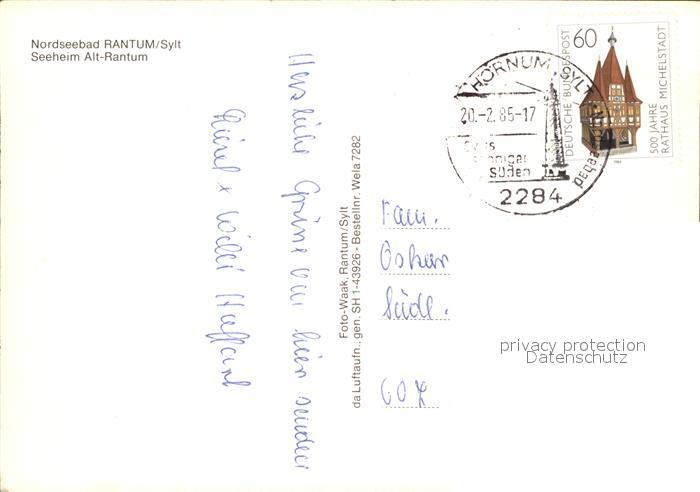 Nordseebad RANTUM/Sylt
Seeheim Alt-Rantum
Herzliche Grüsse von hier senden
Foto-Waak, Rantum/Sylt
da Luftaufn., gen. SH 1-43926 - Bestellnr. Wela 7282
HÖRNUM, SYLT
20.-2.85-17
Sylts
sonniger
Süden
2284
60
DEUTSCHE BUNDESPOST
500 JAHRE
RATHAUS MICHELSTADT
Fam.
Oskar
privacy protection
Datenschutz